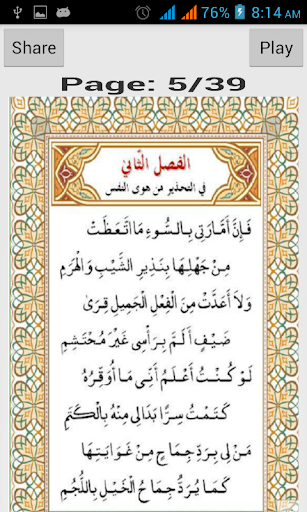 76% 8:14 AM
Share Play
Page: 5/39
الفصل الثاني
في التحذير من هوى النفس
فَإِنَّ أَمَّارَتِي بِالسُّوءِ مَا اتَّعَظَتْ
مِنْ جَهْلِهَا بِنَذِيرِ الشَّيْبِ وَالْهَرَمِ
وَلَا أَعَدَّتْ مِنَ الْفِعْلِ الْجَمِيلِ قِرَى
ضَيْفٍ أَلَمَّ بِرَأْسِي غَيْرَ مُحْتَشِمِ
لَوْ كُنْتُ أَعْلَمُ أَنِّي مَا أُوَقِّرُهُ
كَتَمْتُ سِرًّا بَدَا لِي مِنْهُ بِالْكَتَمِ
مَنْ لِي بِرَدِّ جِمَاحٍ مِنْ غَوَايَتِهَا
كَمَا يُرَدُّ جِمَاحُ الْخَيْلِ بِاللُّجُمِ